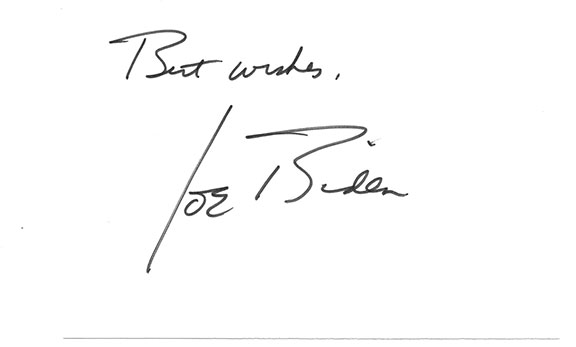 Best wishes,
Joe Biden